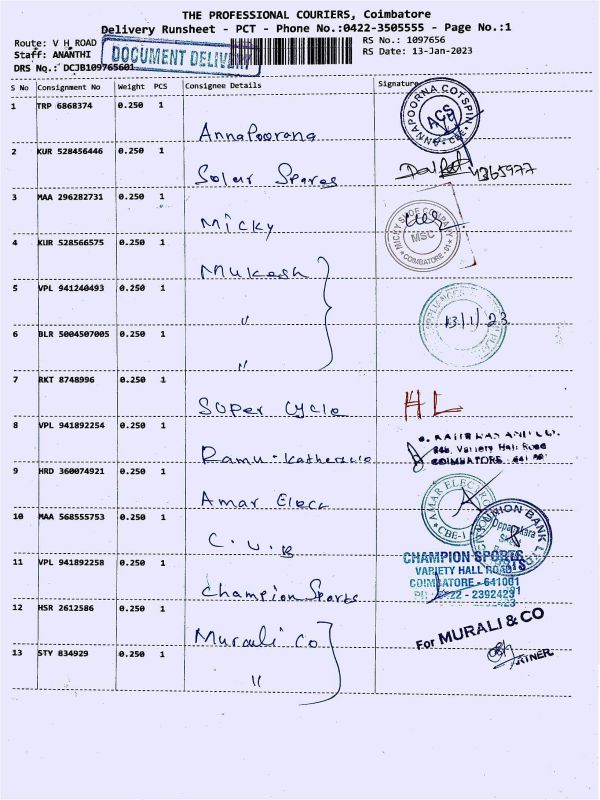 THE PROFESSIONAL COURIERS, Coimbatore
Delivery Runsheet - PCT - Phone No.:0422-3505555 - Page No.:1
Route: V H ROAD
Staff: ANANTHI
DRS No.: DCJB109765601
DOCUMENT DELIVERY
RS No.: 1097656
RS Date: 13-Jan-2023
S No Consignment No Weight PCS Consignee Details Signature
1 TRP 6868374 0.250 1 Annapoorana
ANNAPOORNA COTSPIN ACS CBE
2 KUR 528456446 0.250 1 Solar Spares
3 MAA 296282731 0.250 1 Micky
MICKY SHOE COMPANY MSC COIMBATORE - 01
4 KUR 528566575 0.250 1 Mukesh
5 VPL 941240493 0.250 1 "
13/1/23
6 BLR 5004507005 0.250 1 "
7 RKT 8748996 0.250 1 Super Cycle
HL
8 VPL 941892254 0.250 1 Ramu.
Variety Hall Road
COIMBATORE - 641 001
9 HRD 360074921 0.250 1 Amar Elecc
AMAR ELECTRO CBE-1
10 MAA 568555753 0.250 1 C.U.B
UNION BANK
11 VPL 941892258 0.250 1 Champion Sports
CHAMPION SPORTS
VARIETY HALL ROAD
COIMBATORE - 641001
PH : 0422 - 2392429
12 HSR 2612586 0.250 1 Murali Co
For MURALI & CO
13 STY 834929 0.250 1 "